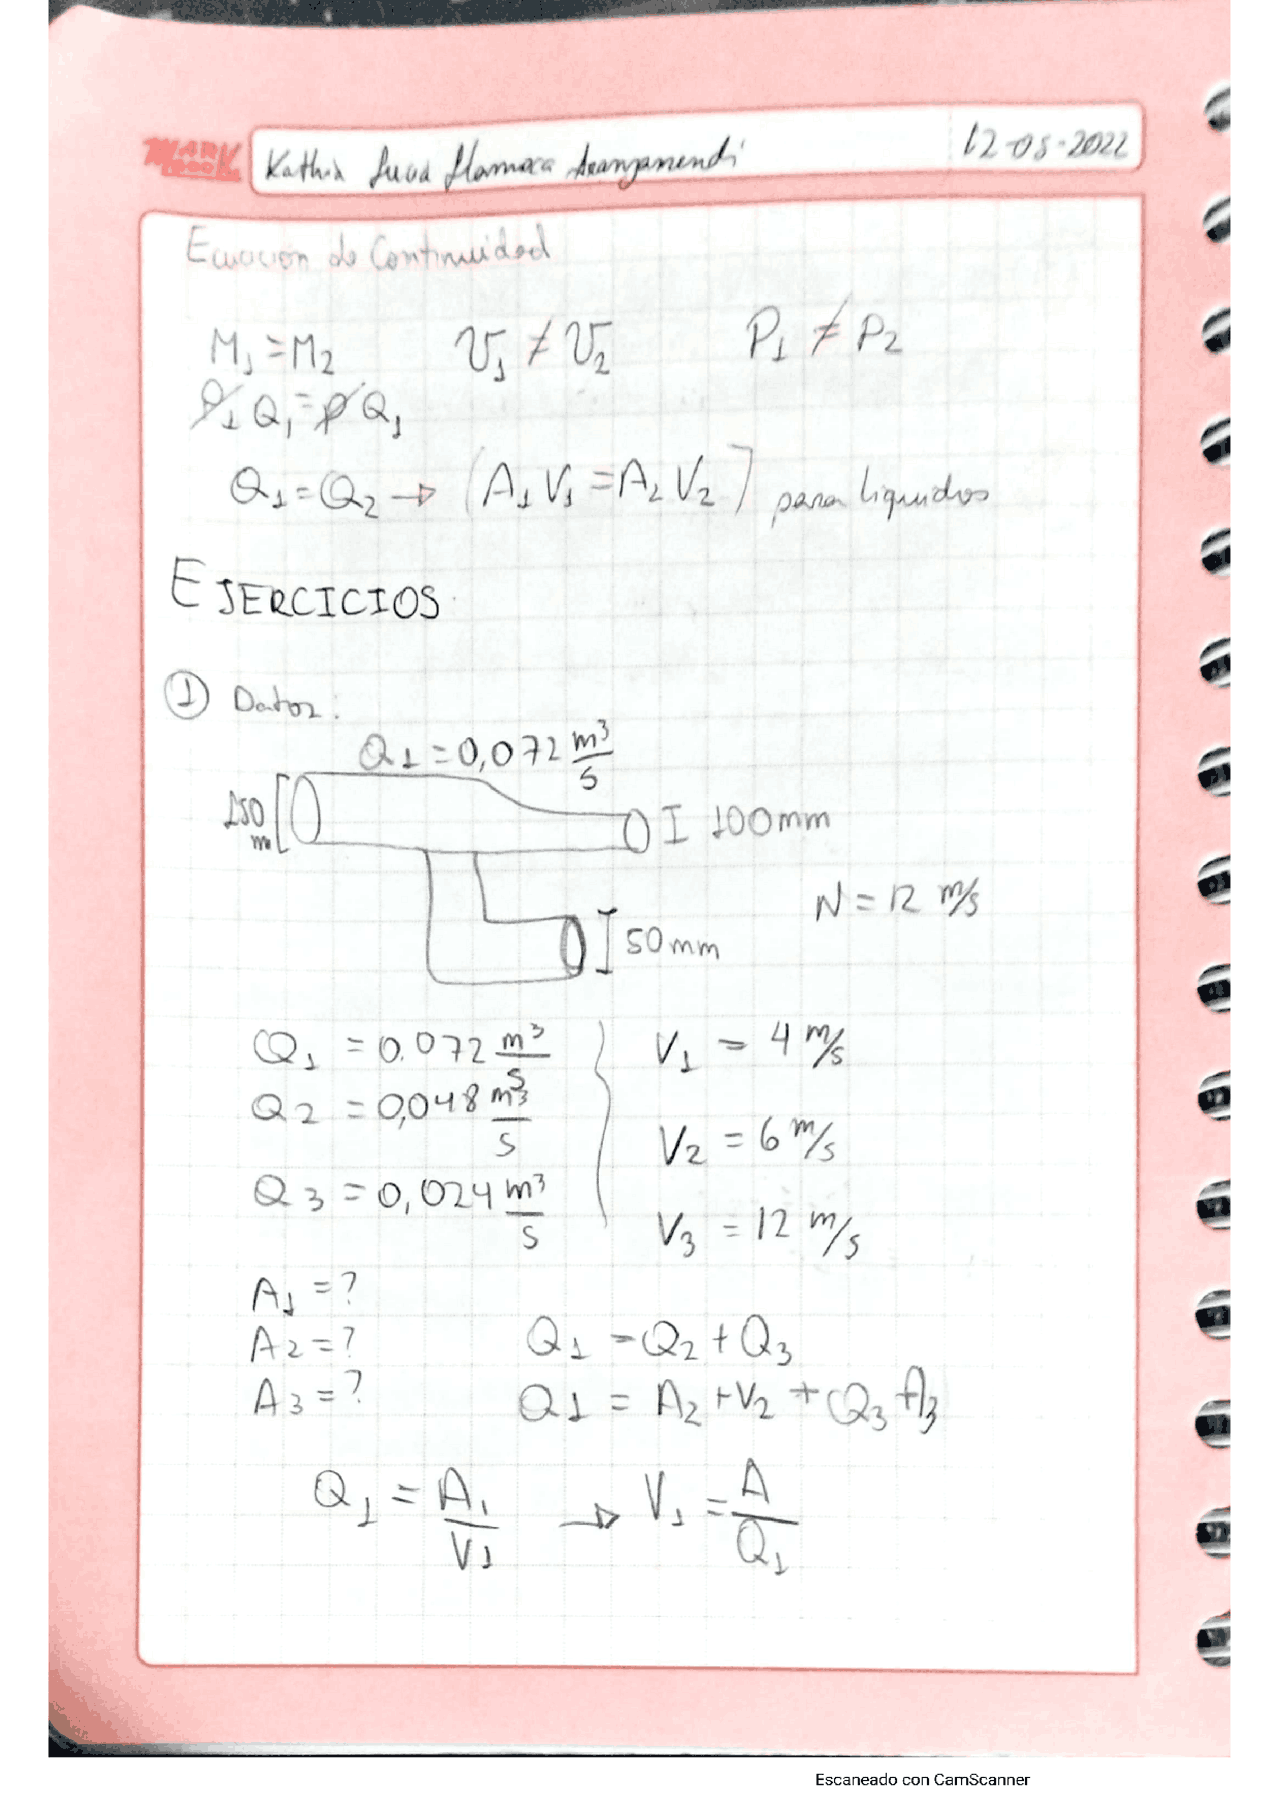 MARK
Kathia 12-05-2022
Ecuacion de Continuidad
M₁ = M₂ V₁ ≠ V₂ P₁ ≠ P₂
ρ₁ Q₁ = ρ Q₁
Q₁ = Q₂ → (A₁ V₁ = A₂ V₂] para liquidos
EJERCICIOS
① Datos:
Q₁ = 0,072 m³/s
150 m
100mm
N = 12 m/s
50mm
Q₁ = 0.072 m³/s V₁ = 4 m/s
Q₂ = 0,048 m³/s V₂ = 6 m/s
Q₃ = 0,024 m³/s V₃ = 12 m/s
A₁ = ?
A₂ = ? Q₁ = Q₂ + Q₃
A₃ = ? Q₁ = A₂ + V₂ + Q₃ A₃
Q₁ = A₁/V₁ → V₁ = A/Q₁
Escaneado con CamScanner